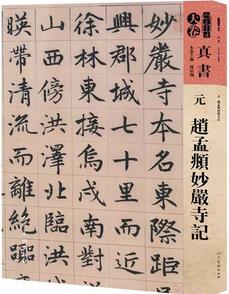 天卷
真書
元
趙孟頫妙嚴寺記
妙嚴寺本名東際距
興郡城七十里而
徐林東接烏戍南
山西傍洪澤北臨洪
映帶清流而離絕囂